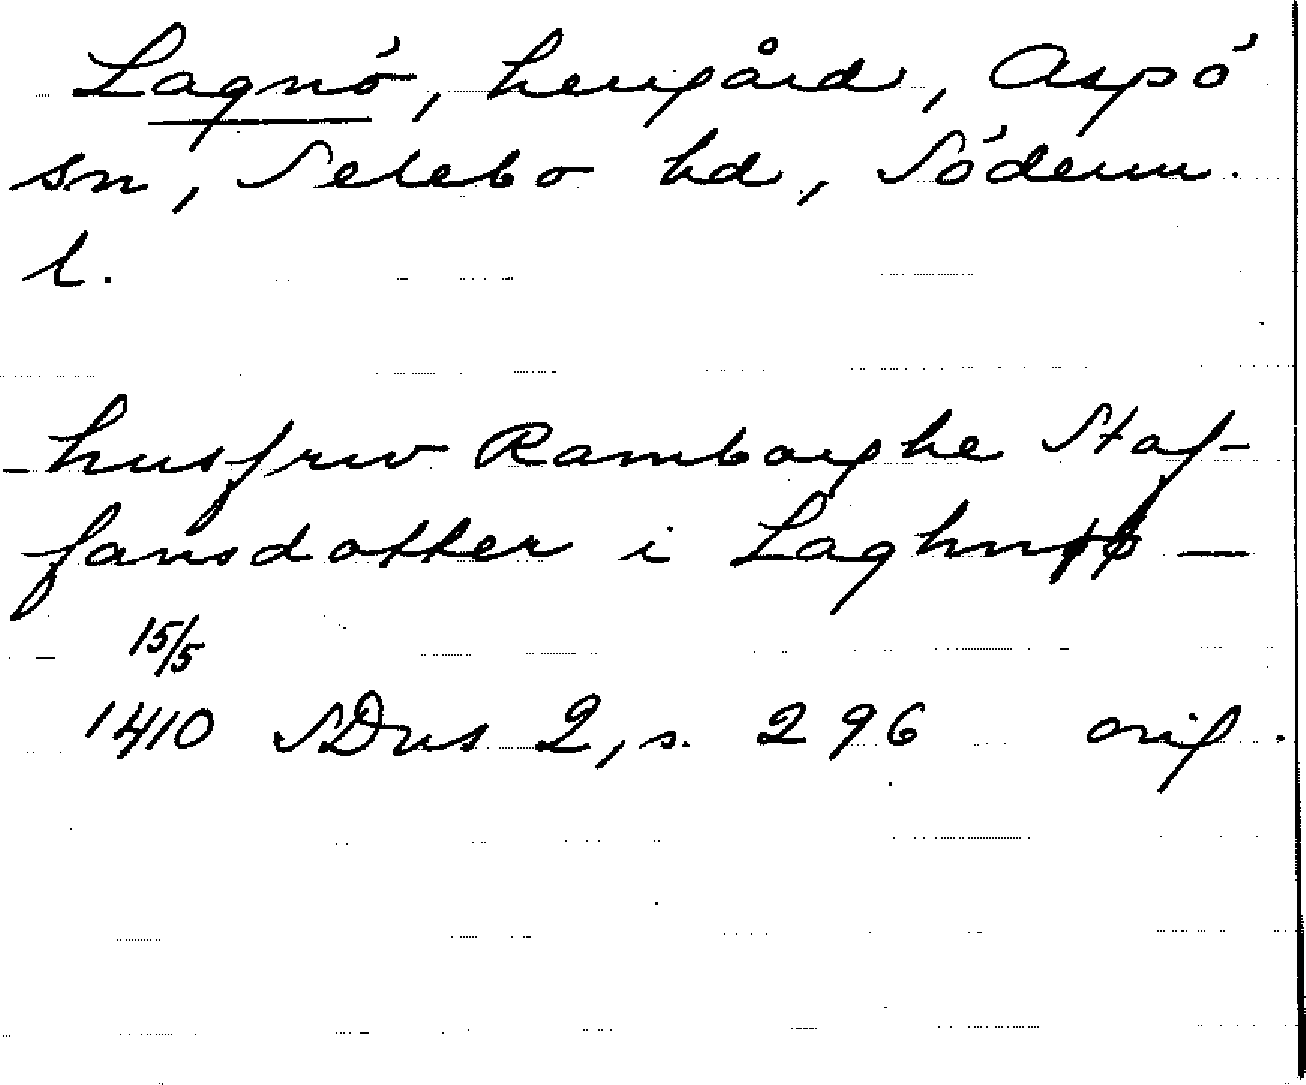 Lagnö, herrgård, Aspö
sn, Selebo hd, Söderm.
l.
- husfrw Ramborghe Staf-
fansdotter i Laghnøø -
- 15/5
1410 SDns 2, s. 296 orig.